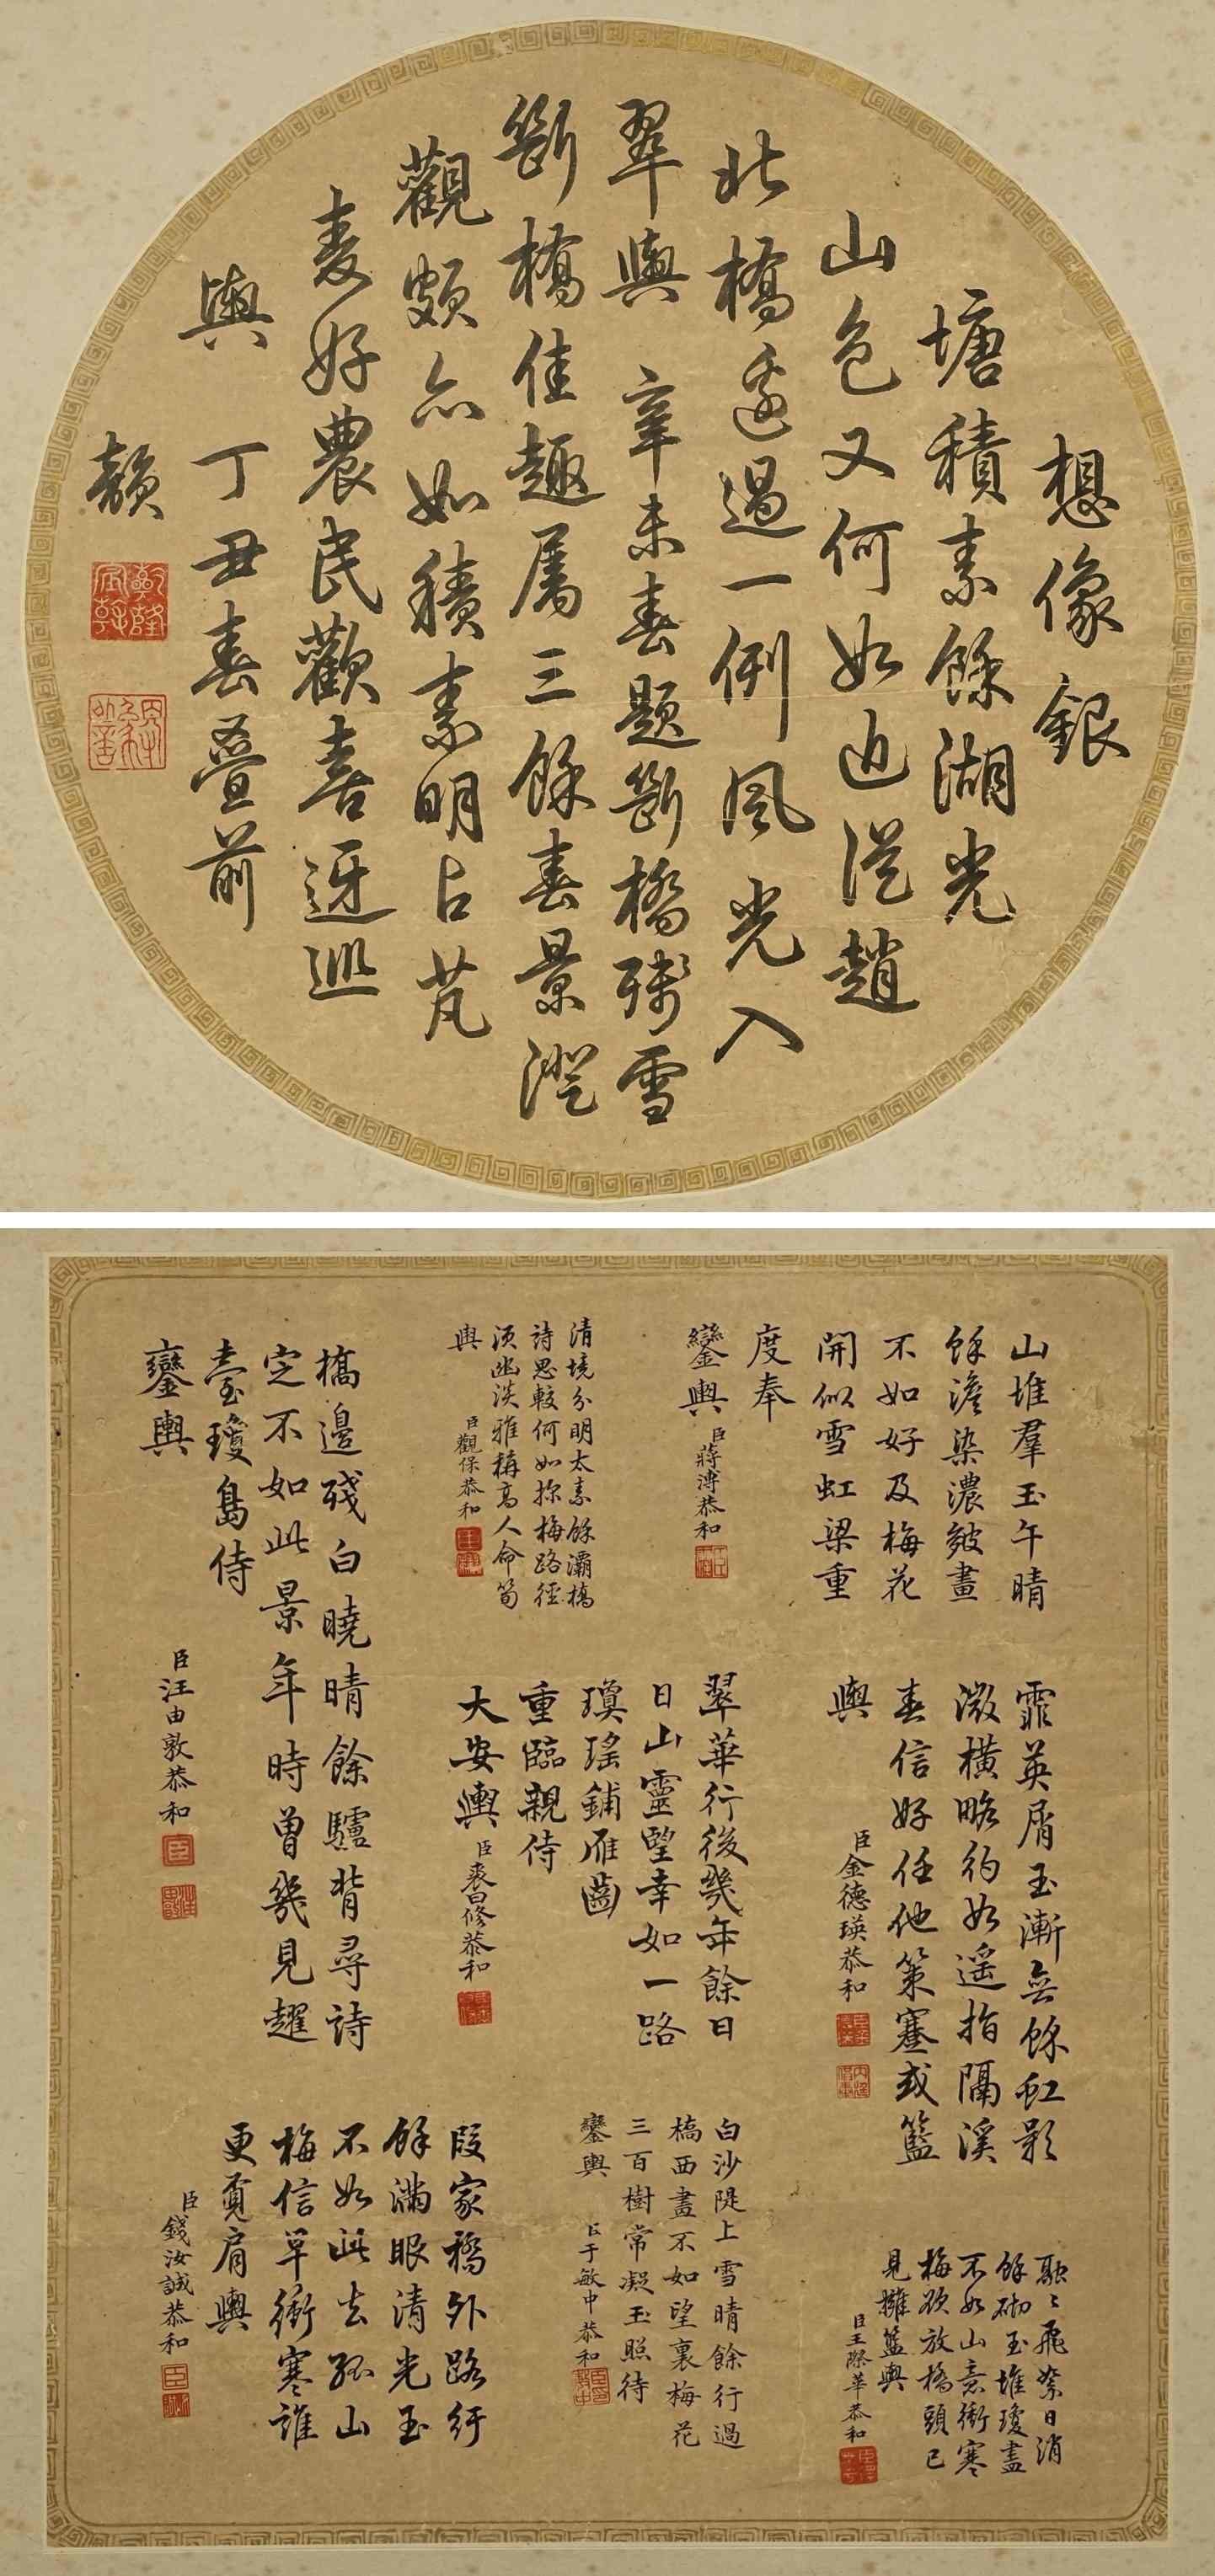 想像銀
塘積素餘湖光
山色又何如迤從趙
北橋邊過一例風光入
翠輿 辛未春題斷橋殘雪
斷橋佳趣屬三餘春景澄
觀頗亦如積素明占芃
麦好農民歡喜迓巡
輿 丁丑春疊前
韻
乾隆
宸翰
山堆羣玉午晴
餘澹染濃皴畫
不如好及梅花
開似雪虹梁重
度奉
鑾輿 臣蔣溥恭和
清境分明太素餘灞橋
詩思較何如探梅路徑
須幽淡雅稱高人命筍
輿 臣觀保恭和
橋邊殘白曉晴餘驢背尋詩
定不如此景年時曾幾見趯
臺瓊島侍
鑾輿
臣汪由敦恭和
霏英屑玉漸無餘虹影
微橫略彴如遥指隔溪
春信好任他策蹇或籃
輿
臣金德瑛恭和
翠華行後幾年餘日
日山靈望幸如一路
瓊瑤鋪雁齒
重臨親侍
大安輿 臣裘曰修恭和
融融飛絮日消
餘砌玉堆瓊畫
不如山意衝寒
梅欲放橋頭已
見擁籃輿
臣王際華恭和
白沙隄上雪晴餘行過
橋西畫不如望裏梅花
三百樹常凝玉照待
鑾輿 臣于敏中恭和
段家橋外路紆
餘滿眼清光玉
不如此去孤山
梅信早衝寒誰
更覓肩輿
臣錢汝誠恭和